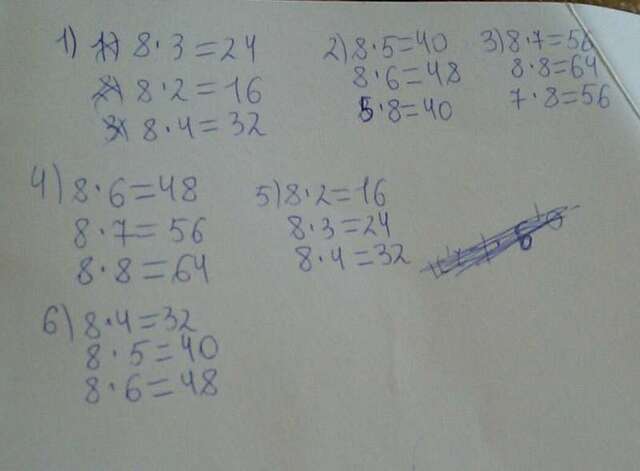 1) 8·3=24
8·2=16
8·4=32
2) 8·5=40
8·6=48
5·8=40
3) 8·7=56
8·8=64
7·8=56
4) 8·6=48
8·7=56
8·8=64
5) 8·2=16
8·3=24
8·4=32
6) 8·4=32
8·5=40
8·6=48